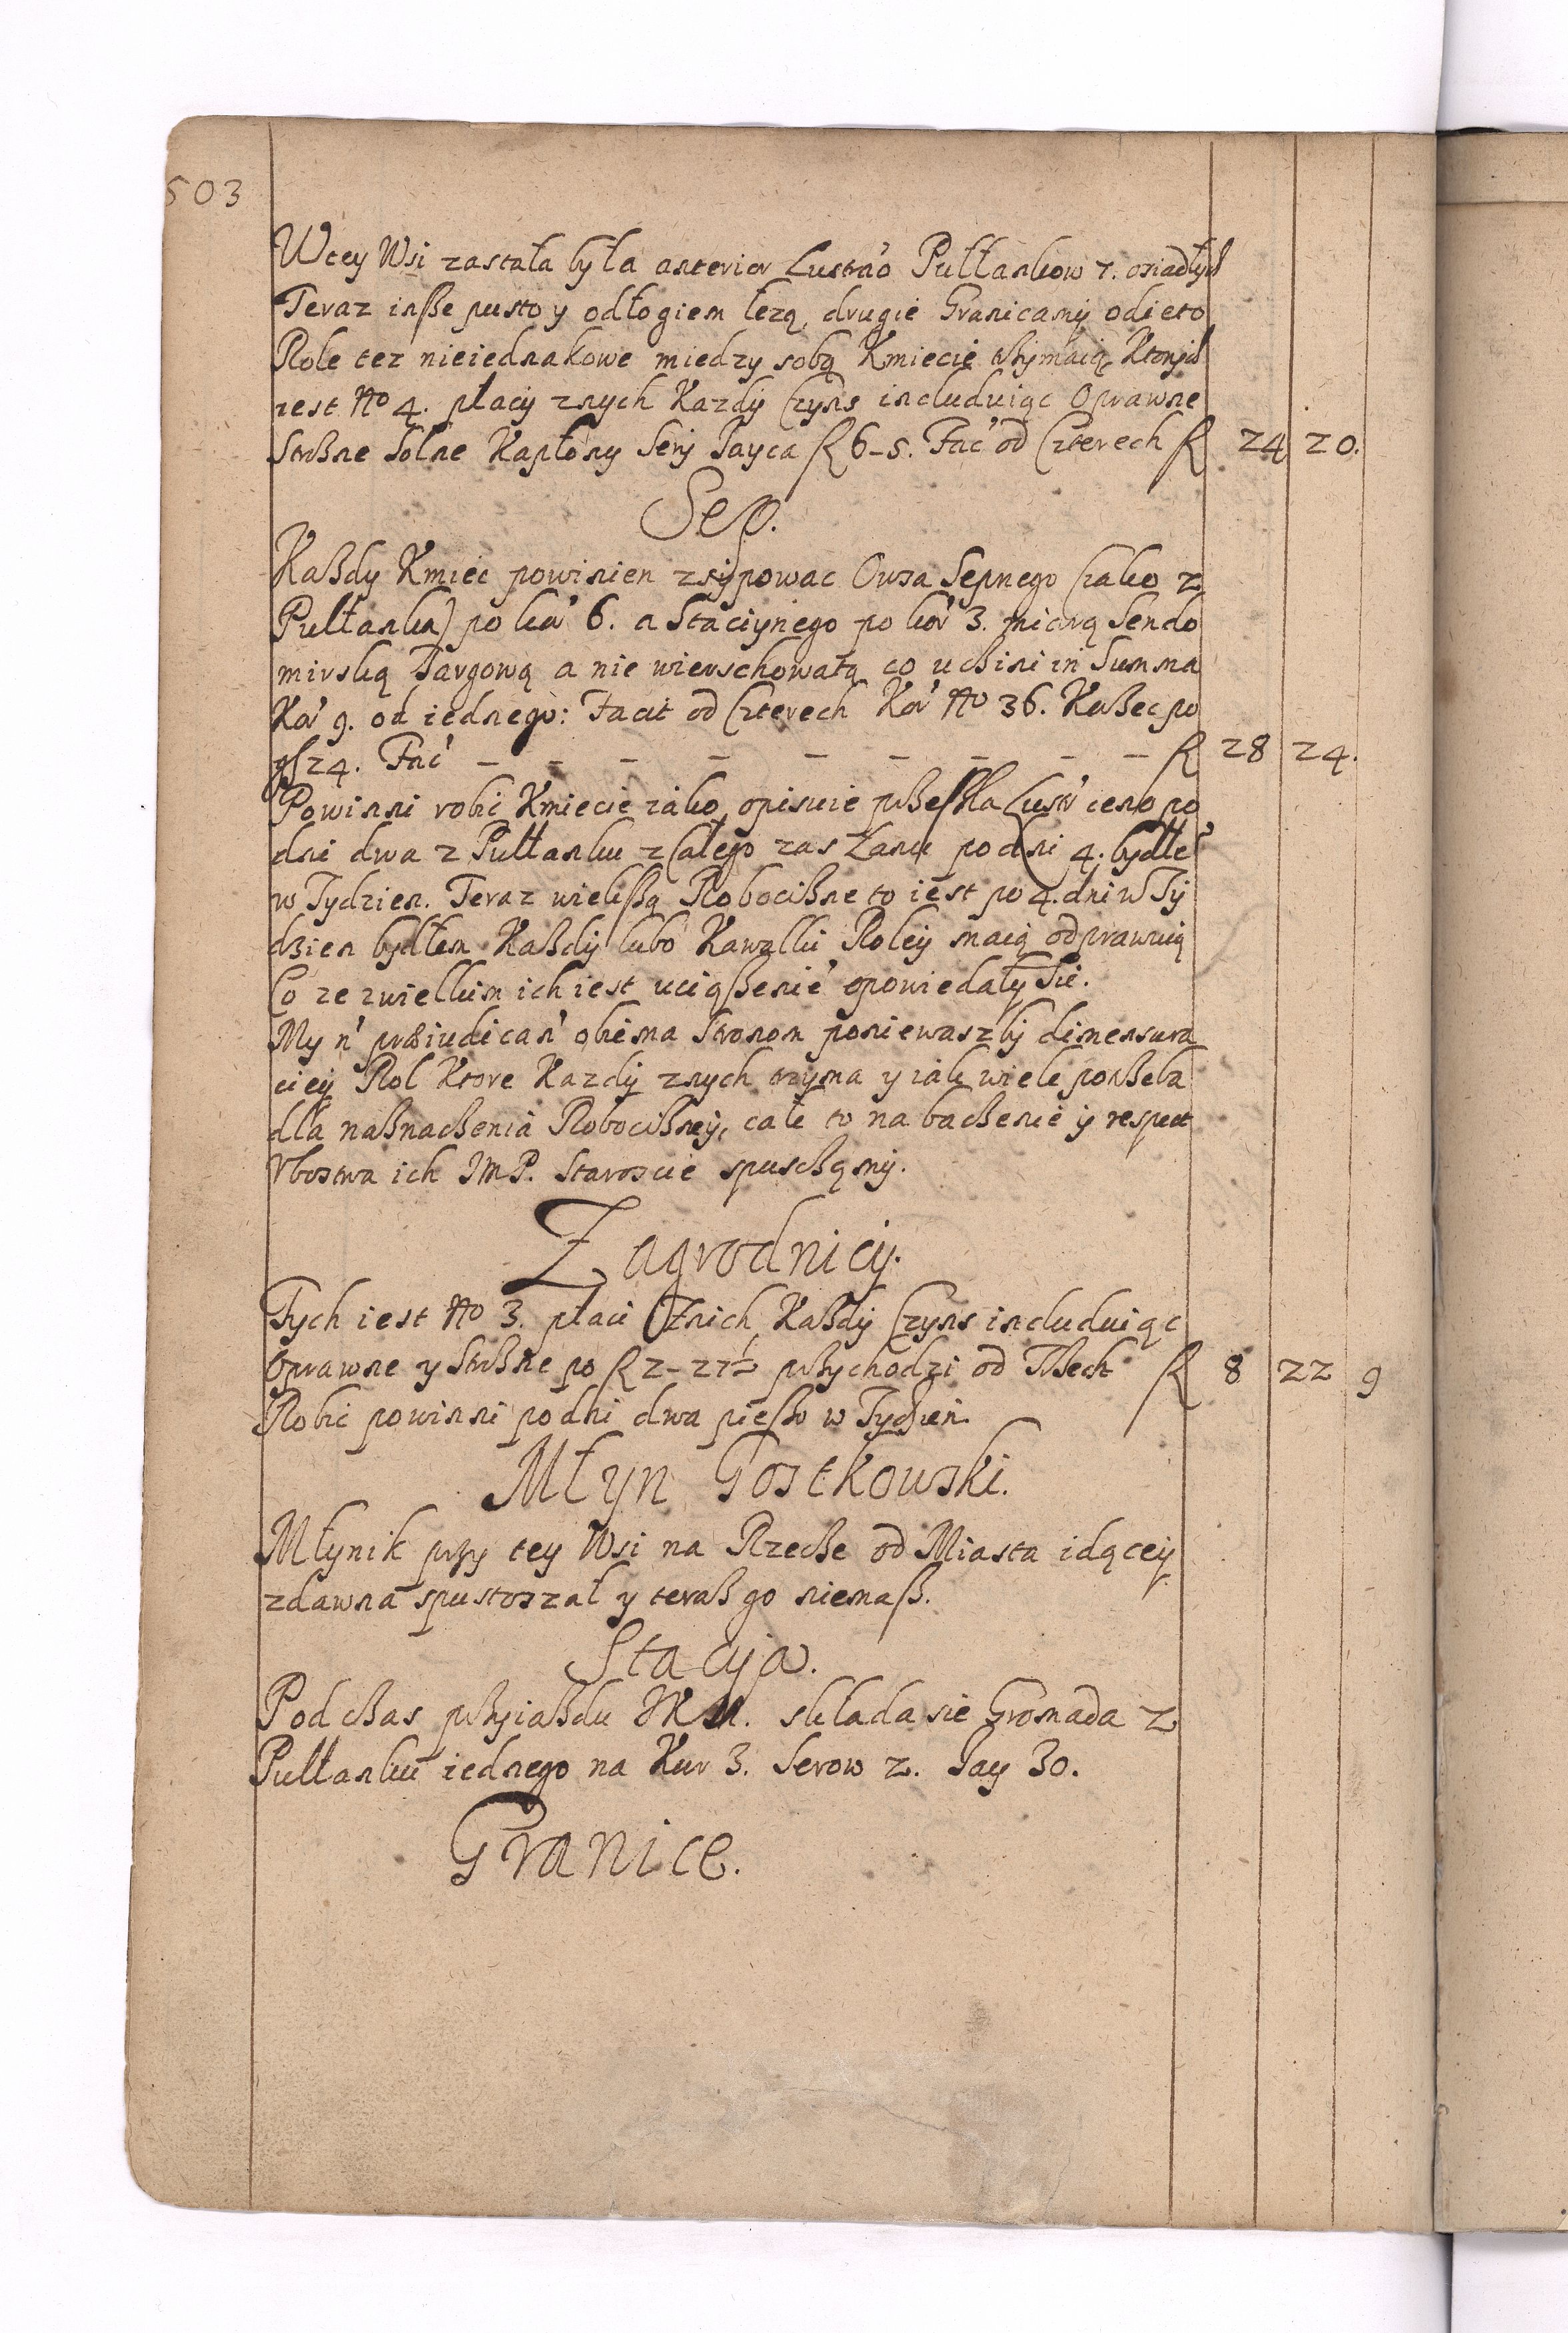 503
Wtey Wsi zastała była anterior Lustrao Pułłankow 7. osiadłych
Teraz insze pusto y odłogiem lezą, drugie Granicamÿ odieto
Role tez nieiednakowe miedzy sobą Kmiecie trzÿmaią, Ktorych
iest No 4. płacÿ znych Kazdÿ Czyns includuiąc Oprawne
Strożne Solne Kapłony Serÿ Jayca fl 6-5. Fac' od Czterech fl 24 20.
Sep.
Kaßdy Kmiec powinien zsÿpowac Owsa Sepnego (iako z
Pułłanku) po kor' 6. a Staciÿnego po kor' 3. miarą Sendo
mirską Targową a nie wierschowatą co uczini in Summa
Kor' 9. od iednego: Facit od Czterech Kor' No 36. Korzec po
gr 24. Fac' – – – – – – – – fl 28 24.
Powinni robic Kmiecie iako opisuie przeszła Lustr' ceno po
dni dwa z Pułłanku z Całego zas Łanu po dni 4. bydłe'
w Tydzien. Teraz wiekszą Robociznę to iest po 4. dni w Tÿ
dzien bydłem Kaßdÿ lubo Kawalki Roleÿ maią odprawuią
Co ze z wielkim ich iest uciąßenie' opowiedałÿ Sie.
My n' præiudican' obiema Stronom poniewasz bÿ dimensura
cieÿ Rol Ktore Kazdÿ znych trzyma y iak wiele potrzeba
dla naßnaczenia Robociznÿ, cale to na baczenie ÿ respect
Vbostwa ich JMP. Staroscie spusczamÿ.
Zagrodnicÿ.
Tych iest No 3. płaci Znich Kaßdÿ Czyns includuiąc
Oprawne y Strożne po fl 2-27½ przychodzi od Trzech fl 8 22 9
Robic powinni po dni dwa pieszo w Tydzien
Młyn Gostkowski.
Młynik przy tey Wsi na Rzecze od Miasta idąceÿ
zdawna spustoszał y teraß go niemaß.
Stacÿa.
Pod czas przyiazdu JKM. składa sie Gromada z
Pułłanku iednego na Kur 3. Serow 2. Jay 30.
Granice.